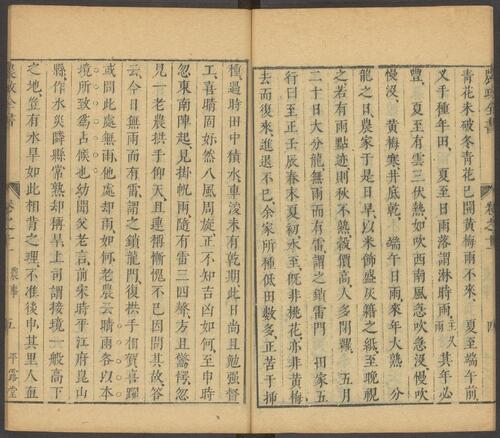 農政全書
卷之十一
四
青花米破冬青花已開黃梅雨不來 夏至端午前
又手種年田 夏至日雨落謂淋時雨主久雨其年必
豐 夏至有雲三伏熱如吹西南風急吹急沒慢吹
慢沒 黃梅寒井底乾 端午日雨來年大熟 分
龍之日農家于是日早以米篩盛灰籍之紙至晚視
之若有雨點迹則秋不熟穀價高人多閉糶 五月
二十日大分龍無雨而有雷謂之鎖雷門 田家五
行曰至正壬辰春末夏初水至旣非桃花亦非黃梅
去而復來進退不已余家所種低田數多正苦于插
種過時田中積水車浚未有乾期此日尚且勉强督
工喜晴固好然八風周旋正不知吉凶如何至申時
忽東南陣起見掛帆雨隨有雷三四聲方且驚愕忽
見一老農拱手仰天且連稱慚愧不已因問其故答
云今日無雨而有雷謂之鎖龍門復拱手相賀喜躍
或問此處無雨他處却雨如何老農云晴雨各以本
境所致爲占候也幼聞父老言前宋時平江府崑山
縣作水災隣縣常熟却稱旱上司謂接境一般高下
之地豈有水旱如此相背之理不准後申其里人直
農政全書
卷之十一
農事
五
平露堂